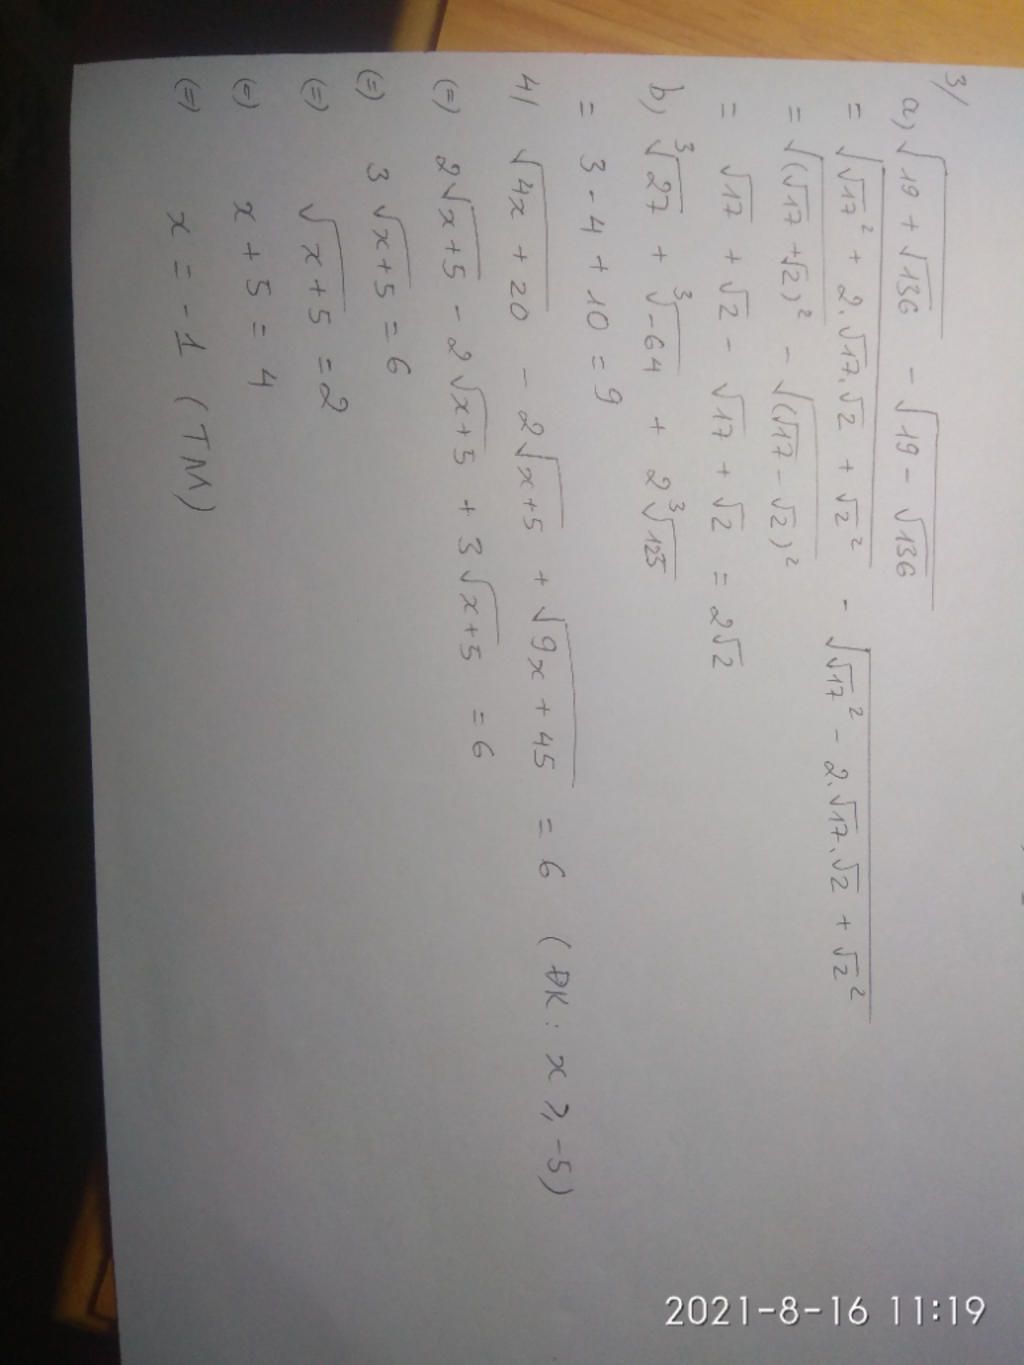 3/
a, √(19 + √136) - √(19 - √136)
= √(√17² + 2.√17.√2 + √2²) - √(√17² - 2.√17.√2 + √2²)
= √(√17 + √2)² - √(√17 - √2)²
= √17 + √2 - √17 + √2 = 2√2
b, ³√27 + ³√-64 + 2³√125
= 3 - 4 + 10 = 9
4/ √(4x + 20) - 2√(x+5) + √(9x + 45) = 6 (ĐK: x ≥ -5)
(=) 2√(x+5) - 2√(x+5) + 3√(x+5) = 6
(=) 3√(x+5) = 6
(=) √(x+5) = 2
(=) x + 5 = 4
(=) x = -1 (TM)
2021-8-16 11:19